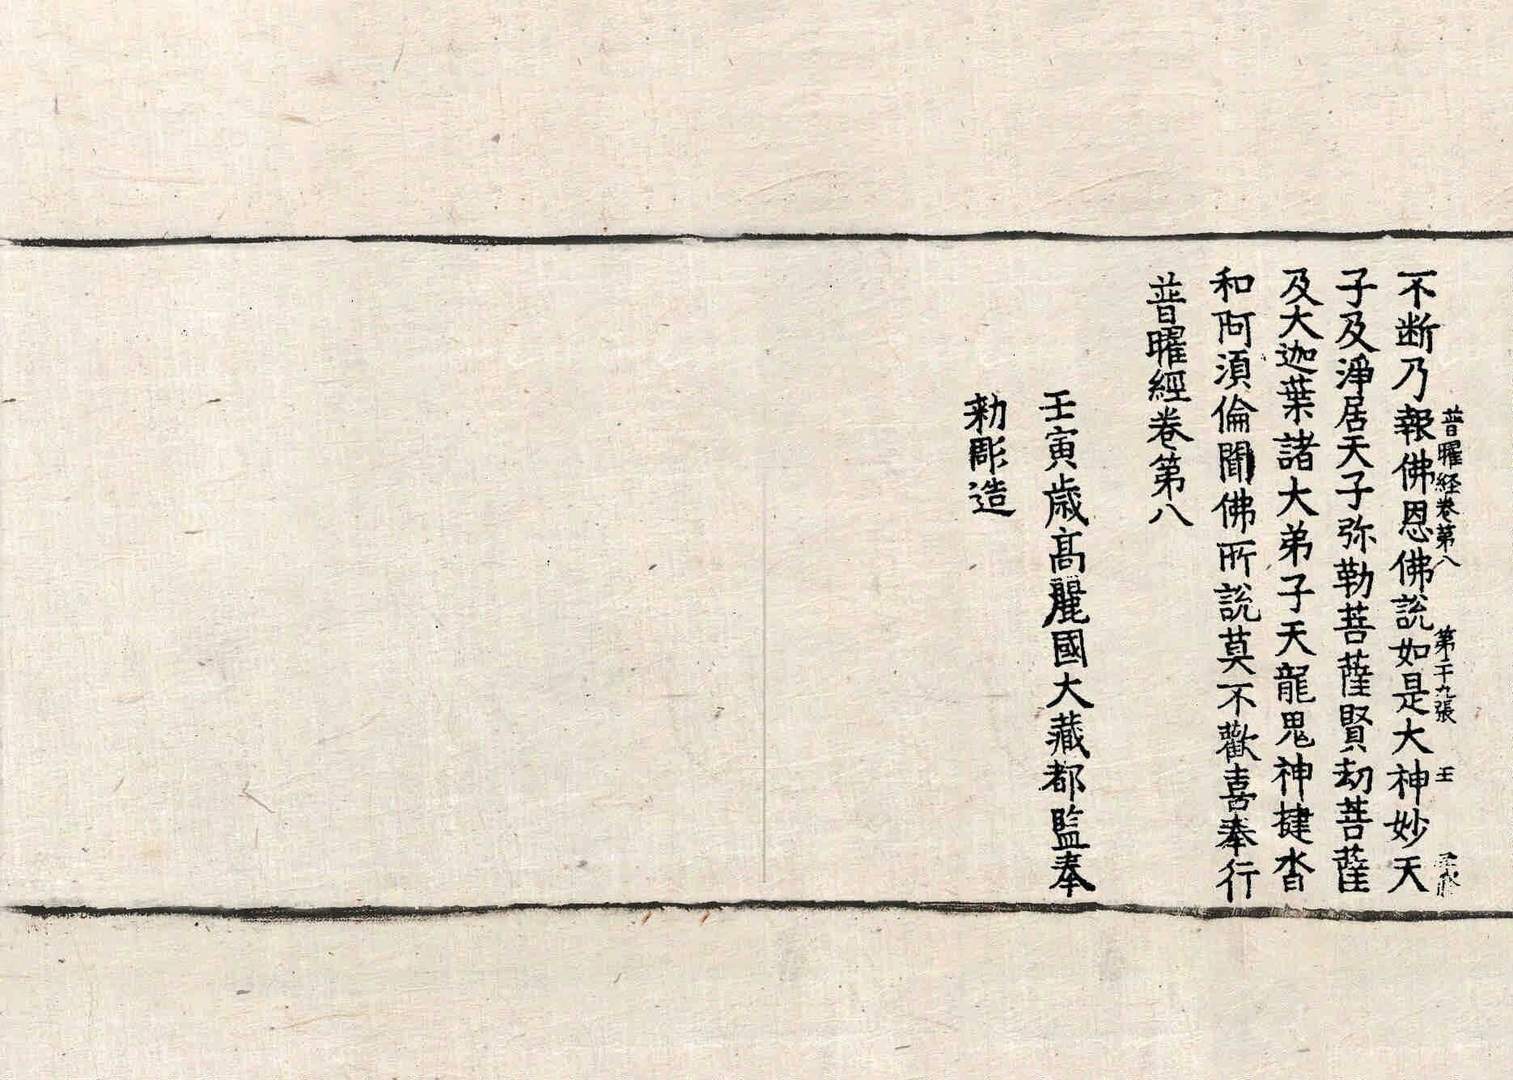 普曜経卷第八 第十九張 王
不断乃報佛恩佛說如是大神妙天
子及淨居天子弥勒菩薩賢劫菩薩
及大迦葉諸大弟子天龍鬼神揵沓
和阿湏倫聞佛所說莫不歡喜奉行
普曜經卷第八
壬寅歲高麗國大藏都監奉
勑彫造